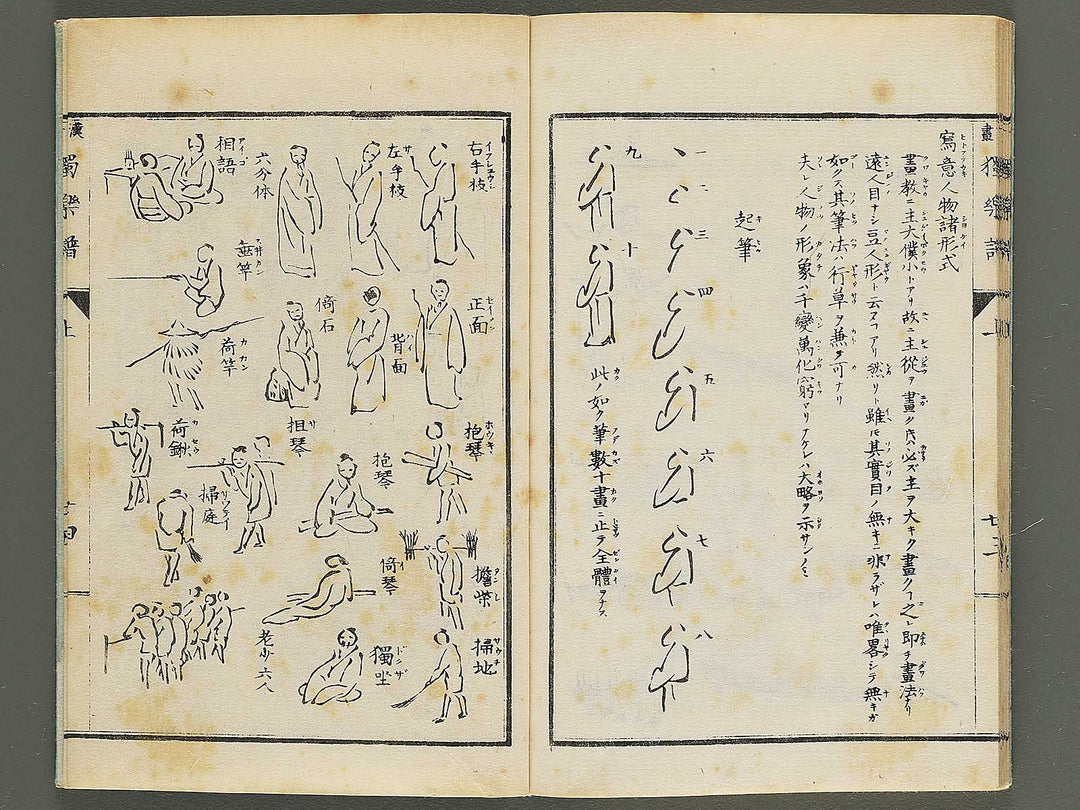 寫意人物諸形式
畫教ニ主大僕小トアリ故ニ主從ヲ畫クニハ必ズ主ヲ大キク畫クヿ之レ即チ畫法ナリ
遠人目ナシ豆人形ト云フヿアリ然リト雖ㇳモ其實目ノ無キニ非ラザレハ唯畧シテ無キガ
如クス其筆法ハ行草ヲ兼ヌ可ナリ
夫レ人物ノ形象ハ千變萬化窮マリナケレハ大略ヲ示サンノミ
起筆
一
二
三
四
五
六
七
八
九
十
此ノ如ク筆數十畫ニ止ヲ全體ヲナス
右手杖
左手杖
六分体
相語
正面
背面
倚石
垂竿
荷竿
抱琴
抱琴
担琴
荷鍬
擔柴
倚琴
掃庭
掃地
獨坐
老少六八